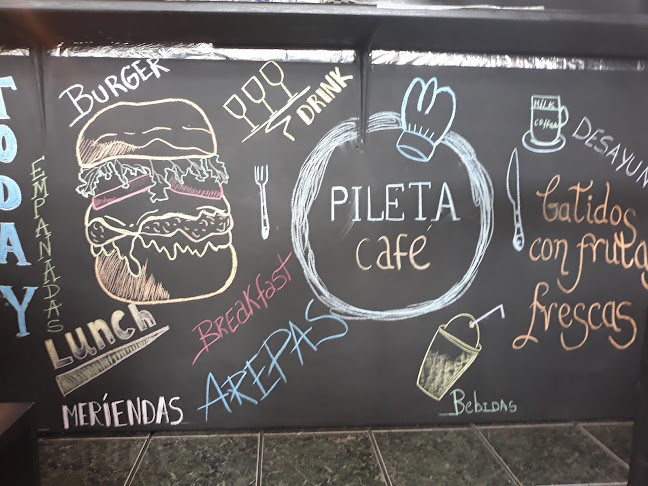 TODAY
EMPANADAS
BURGER
DRINK
Lunch
MERÍENDAS
BreaKfast
AREPAS
PILETA
café
MILK
coffee
DESAYUN
Batidos
con frutas
frescas
BebiDAS